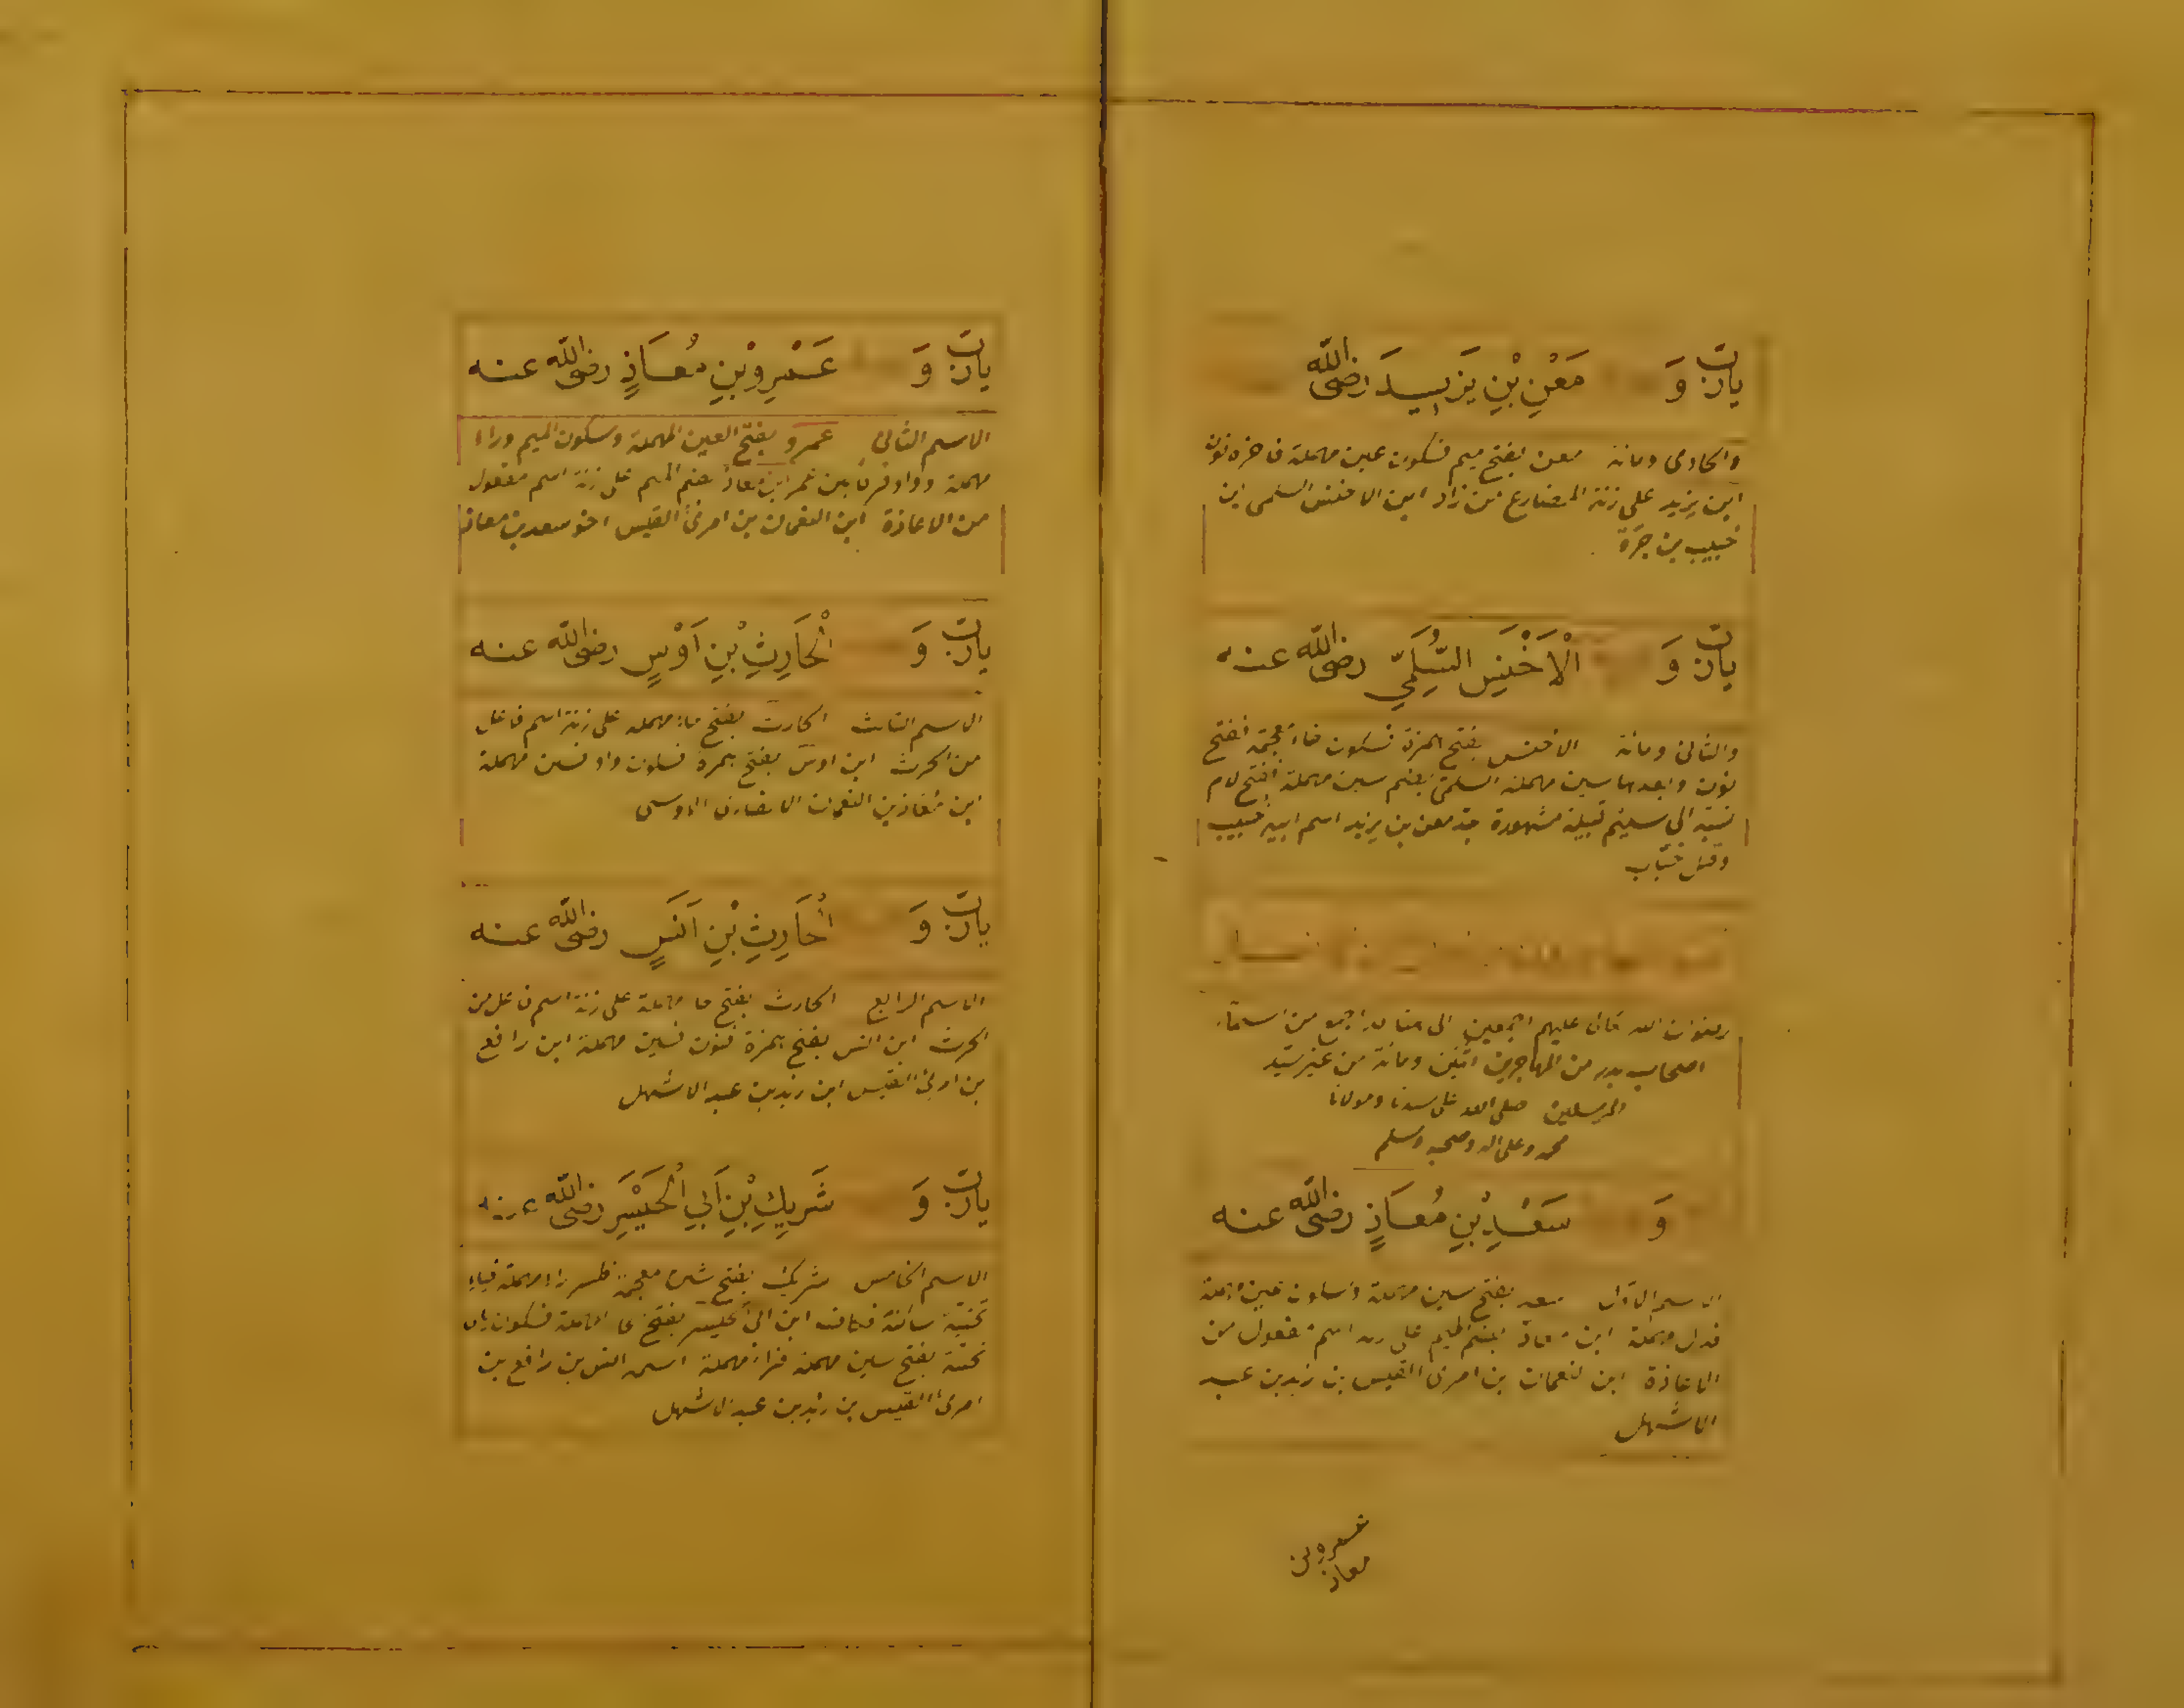 يارب و مَعْنِ بْنِ يَزِيدَ رضى الله
والحادى ومائة معن بفتح ميم فسكون عين مهملة فاخره نون
ابن يزيد على زنة المضارع من زاد ابن الاخنس السلمى ابن
خبيب بن جرة
يارب وَ الْاَخْنَسِ السُّلَمِيِّ رضى الله عنه
والثانى ومائة الاخنس بفتح همزة فسكون خاء معجمة ففتح
نون وبعدها سين مهملة السلمى بضم سين مهملة ففتح لام
نسبة الى سليم قبيلة مشهورة جد معن بن يزيد اسم ابيه خبيب
وقيل خباب
رضوان الله عليهم اجمعين الى هنا من اسماء
اصحاب بدر من المهاجرين اثنين ومائة من غير سيد
المرسلين صلى الله على سيدنا ومولانا
محمد وعلى اله وصحبه وسلم
وَ سَعْدِ بْنِ مُعَاذٍ رضى الله عنه
الاسم الاول سعد بفتح سين مهملة وسكون عين مهملة
فدال مهملة ابن معاذ بضم الميم على زنة اسم مفعول من
الاعاذة ابن نعمان بن امرئ القيس بن زيد بن عبد
الاشهل
عمرو بن
معاذ
يارب وَ عَمْرِو بْنِ مُعَاذٍ رضى الله عنه
الاسم الثانى عمرو بفتح العين المهملة وسكون الميم وراء
مهملة وواو فرقا بين عمر ابن معاذ بضم الميم على زنة اسم مفعول
من الاعاذة ابن النعمان بن امرئ القيس اخو سعد بن معاذ
يارب وَ الْحَارِثِ بْنِ اَوْسٍ رضى الله عنه
الاسم الثالث الحارث بفتح حاء مهمله على زنة اسم فاعل
من الحرث ابن اوس بفتح همزة فسكون واو فسين مهملة
ابن معاذ بن النعمان الانصارى الاوسى
يارب وَ الْحَارِثِ بْنِ اَنَسٍ رضى الله عنه
الاسم الرابع الحارث بفتح حا مهملة على زنة اسم فاعل من
الحرث ابن انس بفتح همزة فنون فسين مهملة ابن رافع
بن امرئ القيس ابن زيد بن عبد الاشهل
يارب وَ شَرِيكِ بْنِ اَبِي الْحَيْسَرِ رضى الله عنه
الاسم الخامس شريك بفتح شين معجمة فكسر راء مهملة فياء
تحتية ساكنة فكاف ابن ابى الحيسر بفتح حا مهملة فسكون ياء
تحتية بفتح سين مهملة فراء مهملة اسمه انس بن رافع بن
امرئ القيس بن زيد بن عبد الاشهل